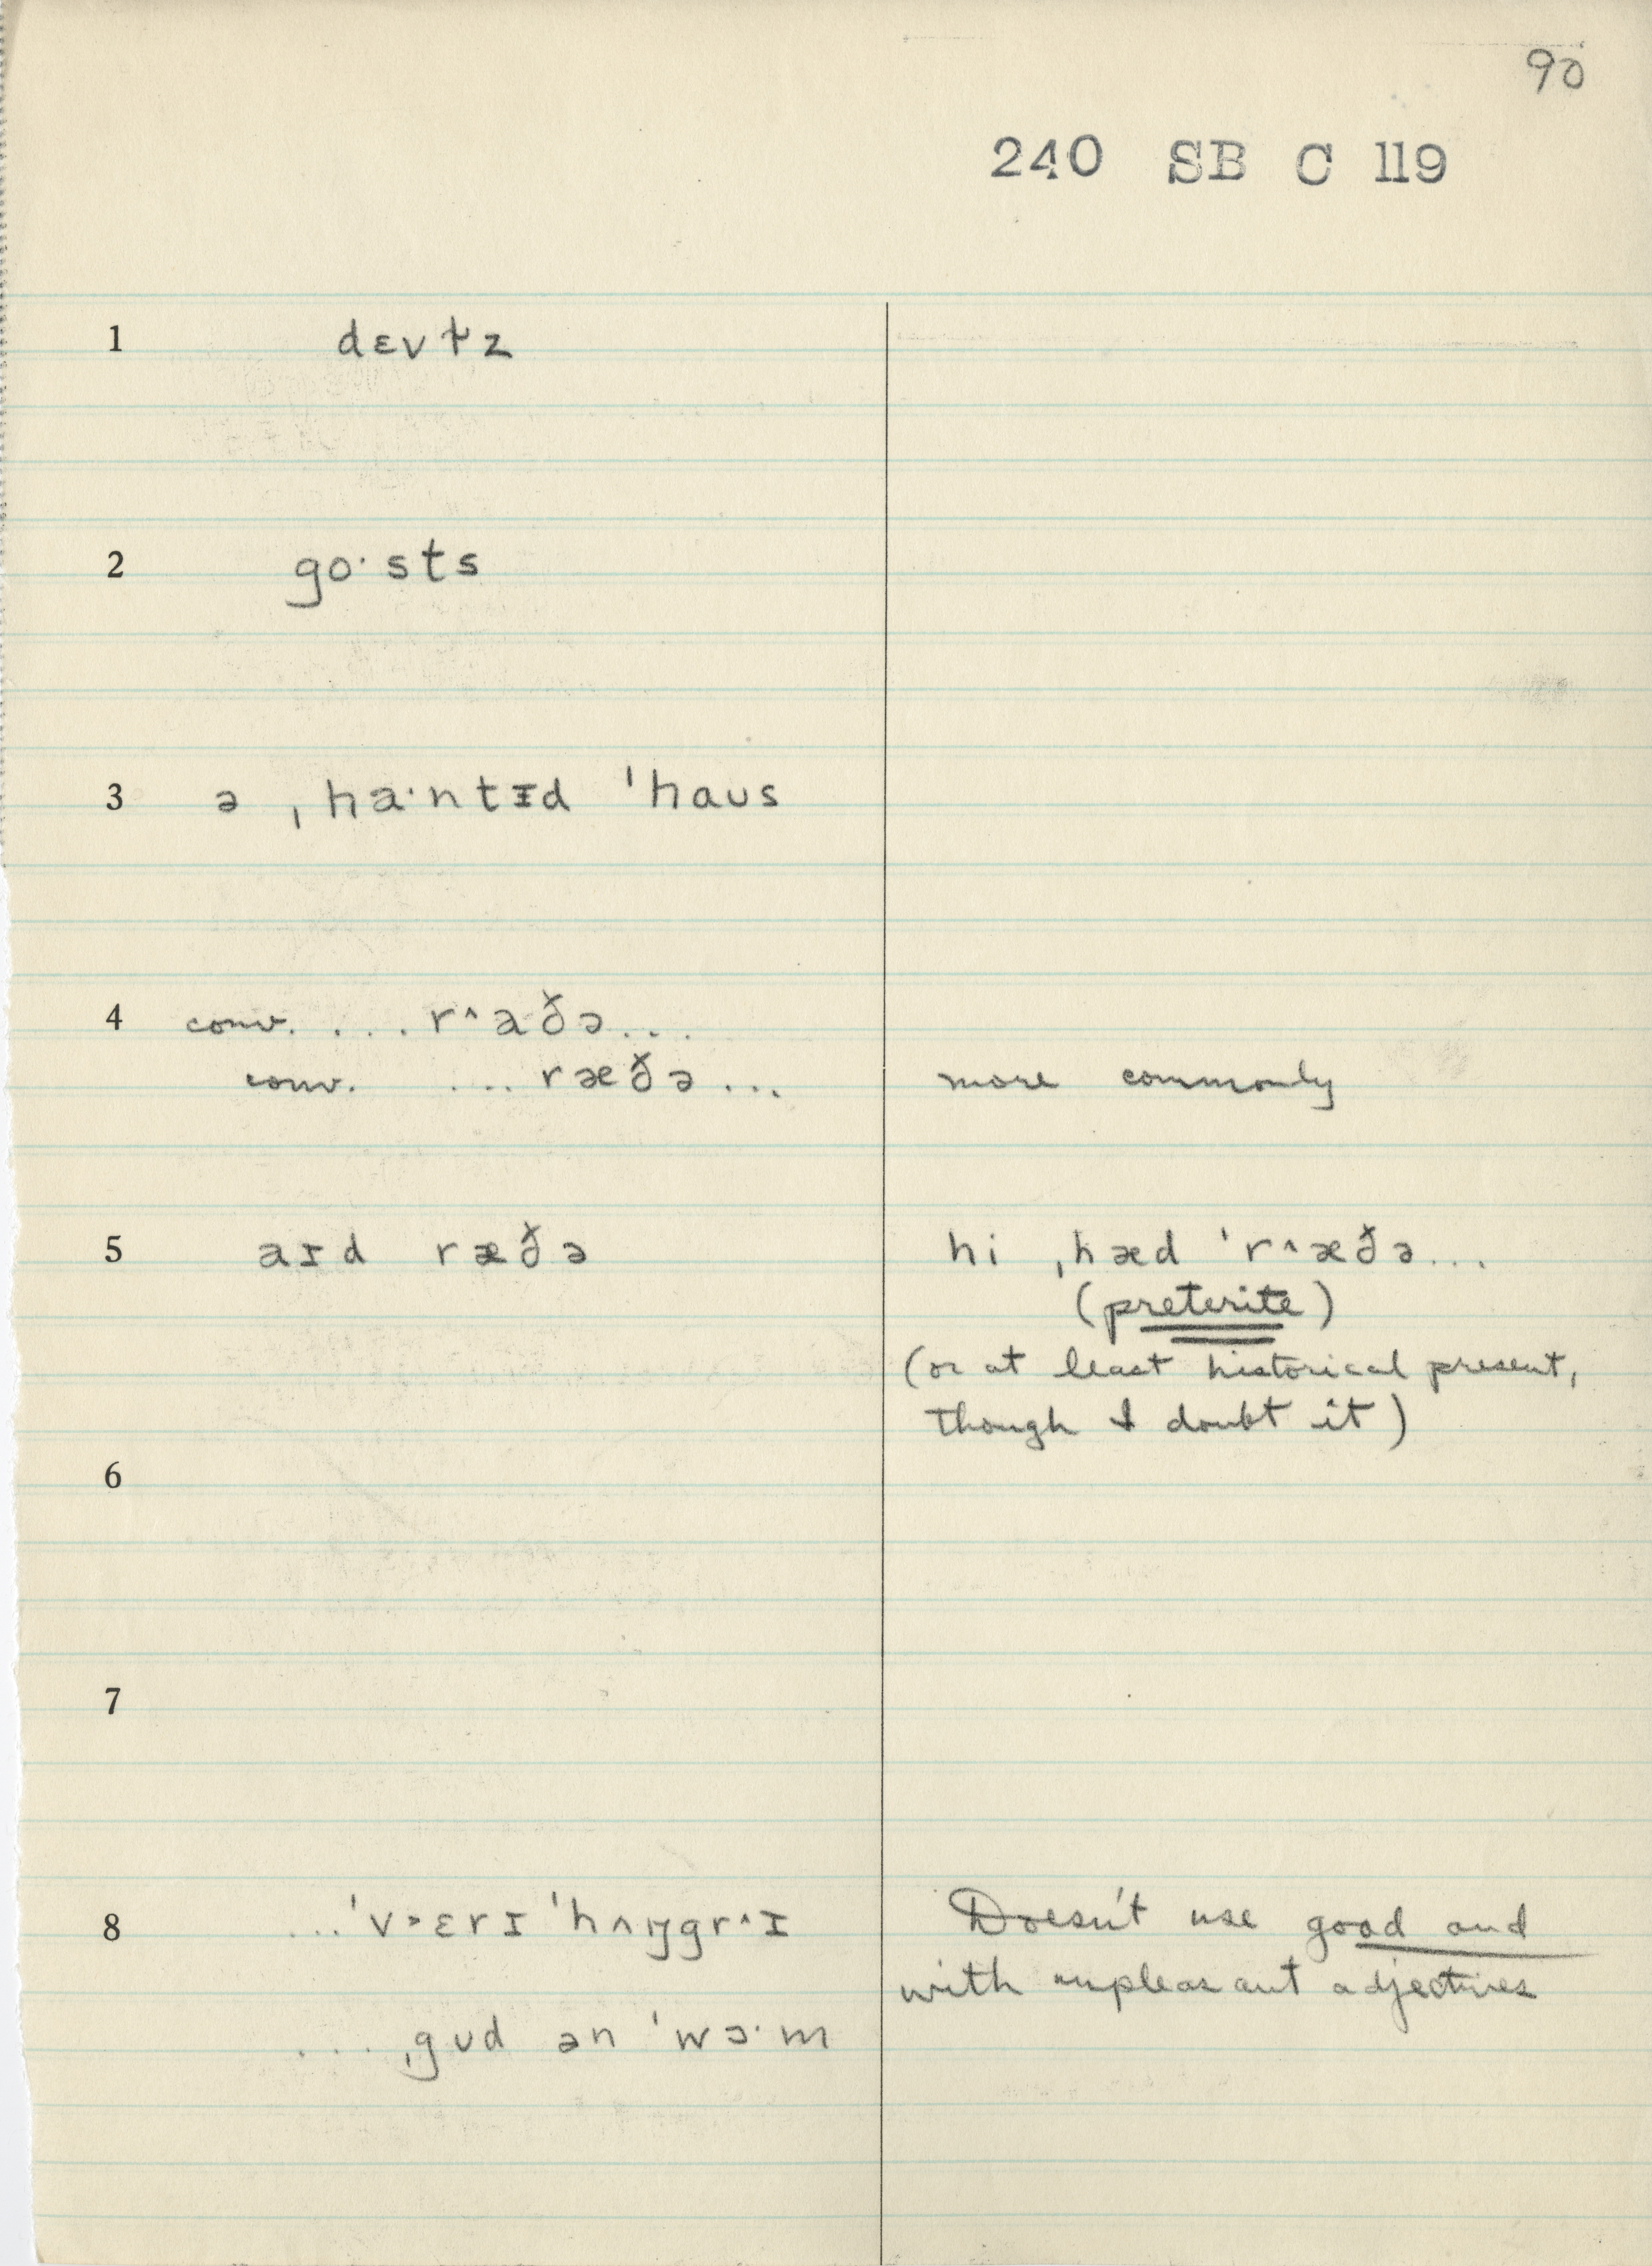 90
240 SB C 119
1 dɛvɫz
2 go·sts
3 ə ˌha·ntɪd ˈhaʊs
4 conv. ...r^að̆ə...
conv. ...ræð̆ə... more commonly
5 aɪd ræð̆ə hi ˌhæd ˈr^æð̆ə...
(preterite)
(or at least historical present,
though I doubt it)
6
7
8 ...ˈv>ɛrɪ ˈhʌŋgr^ɪ Doesn't use good and
with unpleasant adjectives
...ˌgʊd ən ˈwɔ·m